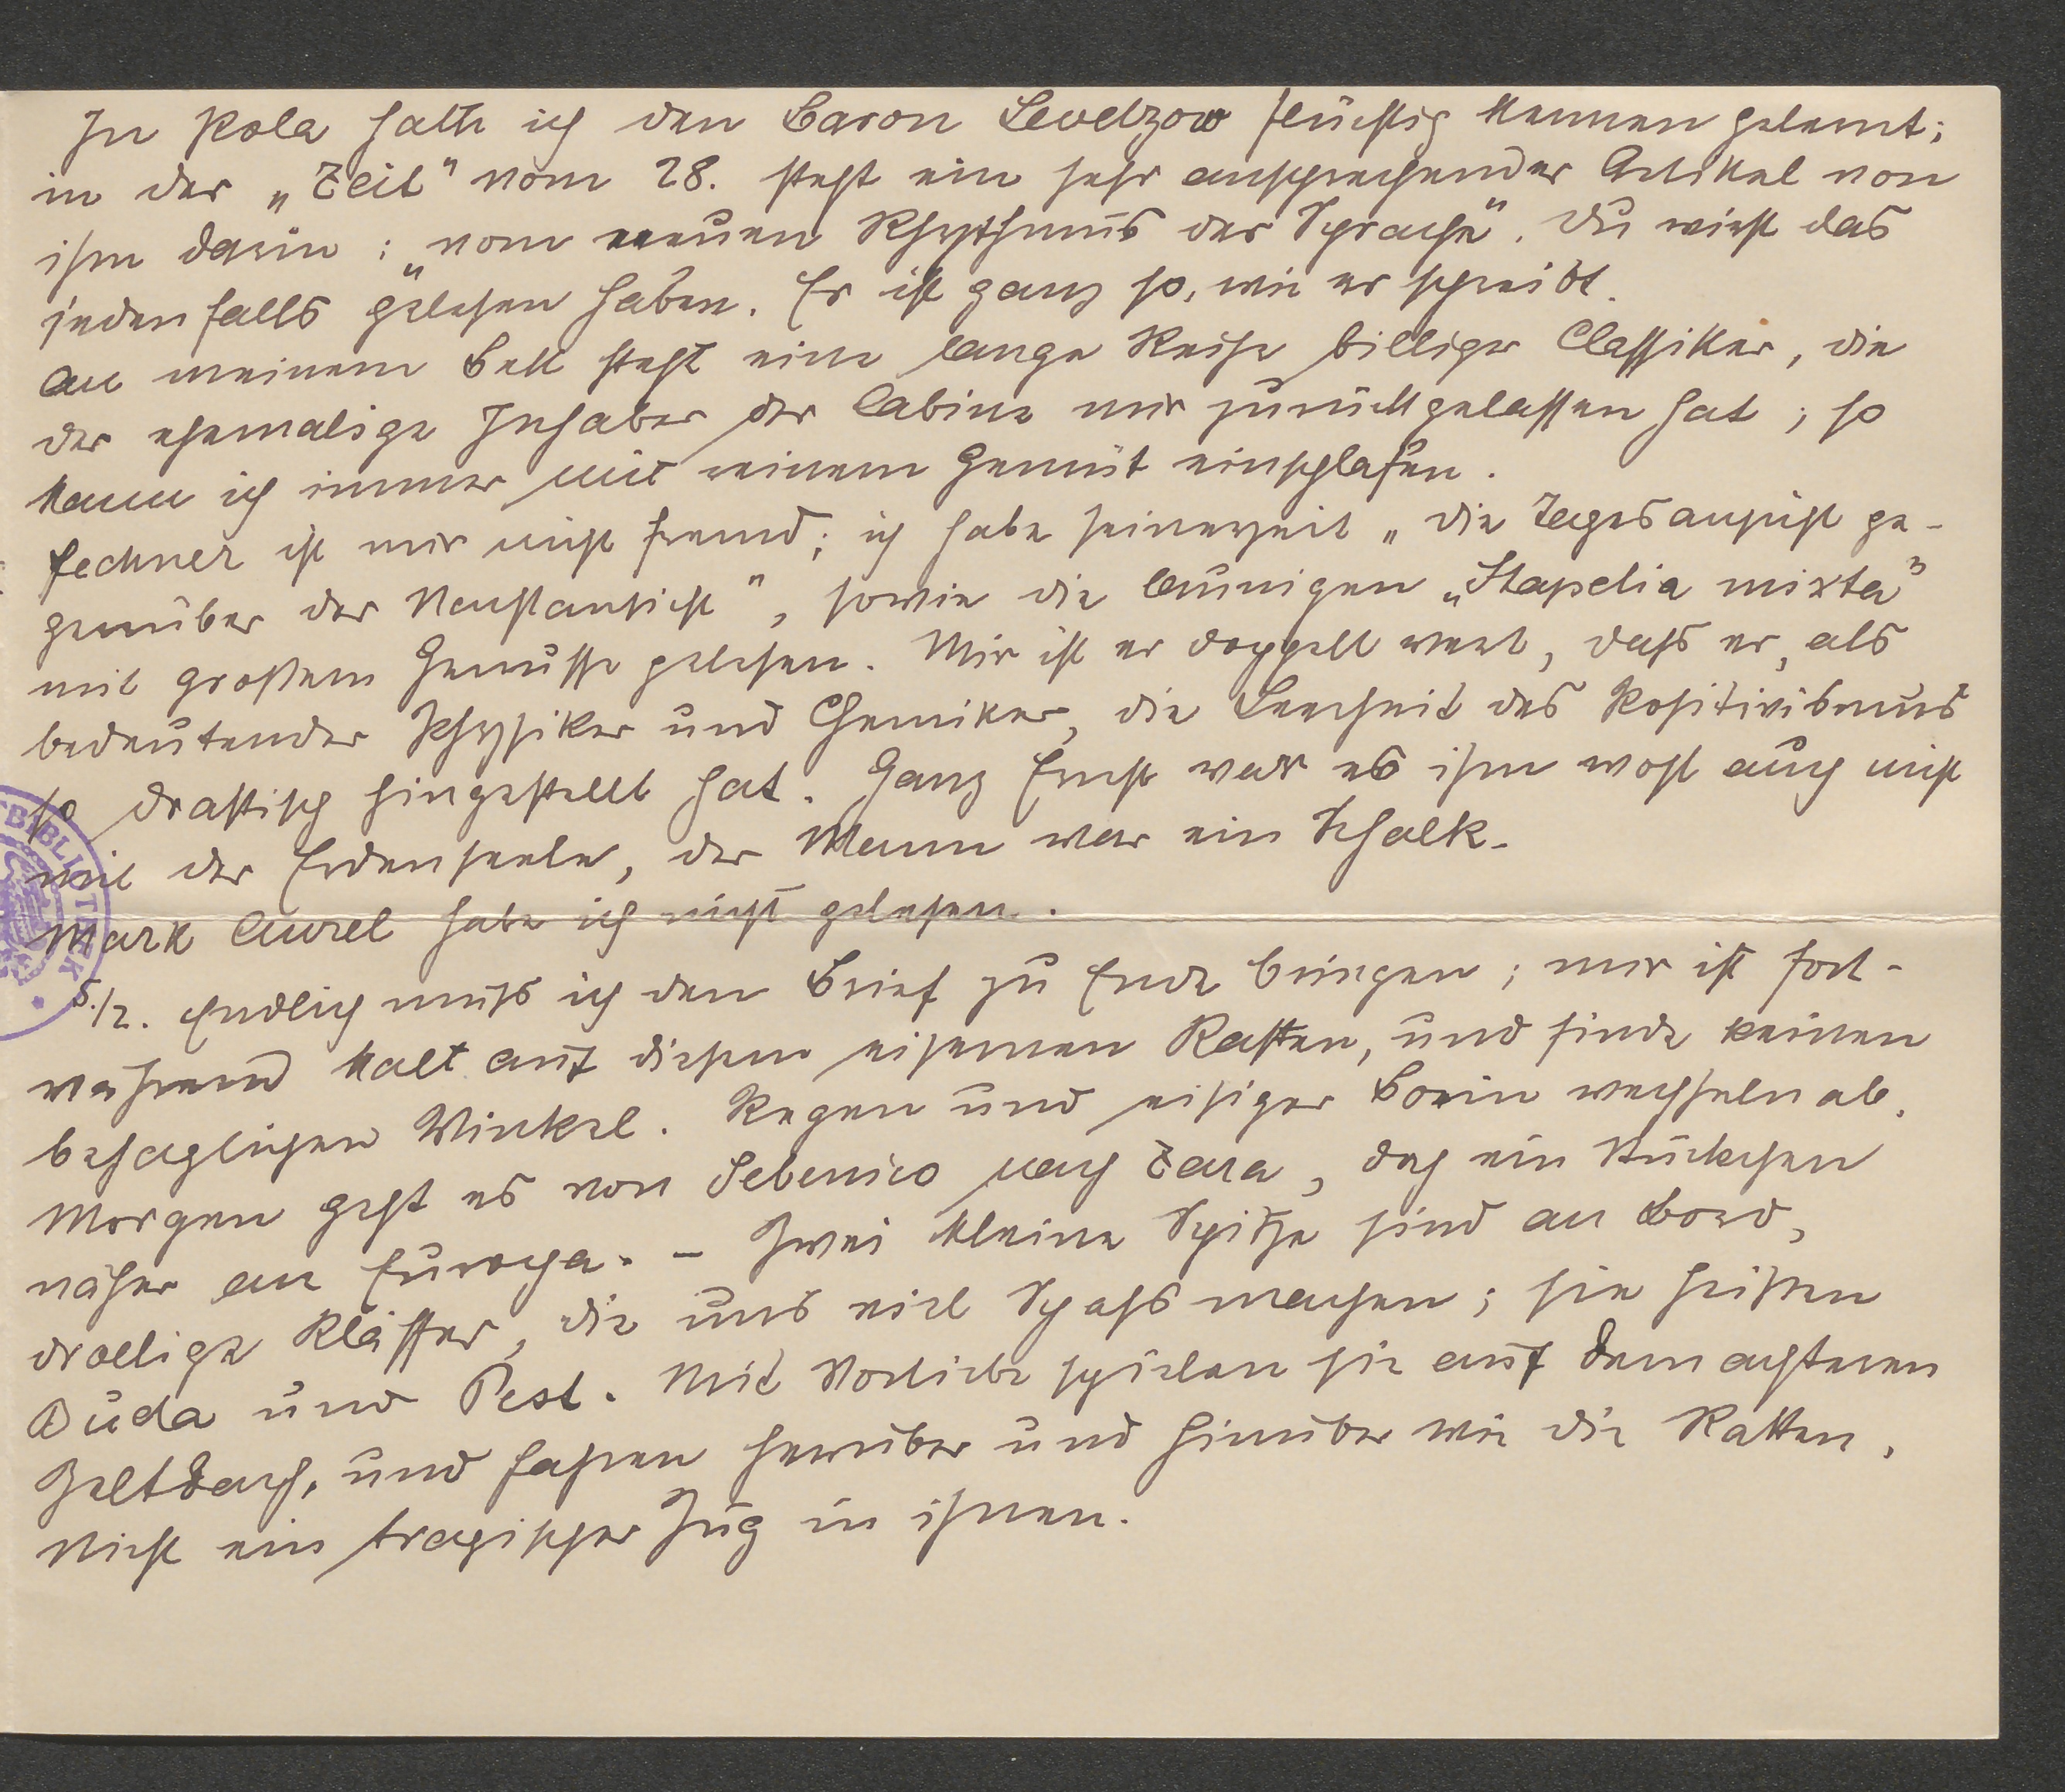 In Pola hatte ich den Baron Levetzow flüchtig kennen gelernt;
in der „Zeit" vom 28. steht ein sehr ansprechender Artikel von
ihm darin: „vom neuen Rhythmus der Sprache". Du wirst das
jedenfalls gelesen haben. Er ist ganz so, wie er schreibt.
An meinem Bett steht eine lange Reihe billiger Classiker, die
der ehemalige Inhaber der Cabine mir zurückgelassen hat; so
kann ich immer mit reinem Gemüt einschlafen.
Fechner ist mir nicht fremd; ich habe seinerzeit „die Tagesansicht ge-
genüber der Nachtansicht", sowie die launigen „Stapelia mixta"
mit großem Genusse gelesen. Mir ist er doppelt wert, dass er, als
bedeutender Physiker und Chemiker, die Leerheit des Positivismus
so drastisch hingestellt hat. Ganz Ernst war es ihm wohl auch nicht
mit der Erdenseele, der Mann war ein Schalk.
Mark Aurel habe ich nicht gelesen.
5./2. Endlich muss ich den Brief zu Ende bringen; mir ist fort-
während kalt auf diesem eisernen Kasten, und finde keinen
behaglichen Winkel. Regen und eisiger Borin wechseln ab.
Morgen geht es von Sebenico nach Zara, doch ein Stückchen
näher an Europa. – Zwei kleine Spitze sind an Bord,
drollige Kläffer, die uns viel Spass machen; sie heißen
Buda und Pest. Mit Vorliebe spielen sie auf dem achteren
Zeltdach, und fahren herüber und hinüber wie die Ratten.
Nicht ein tragischer Zug in ihnen.
BIBLIOTHEK